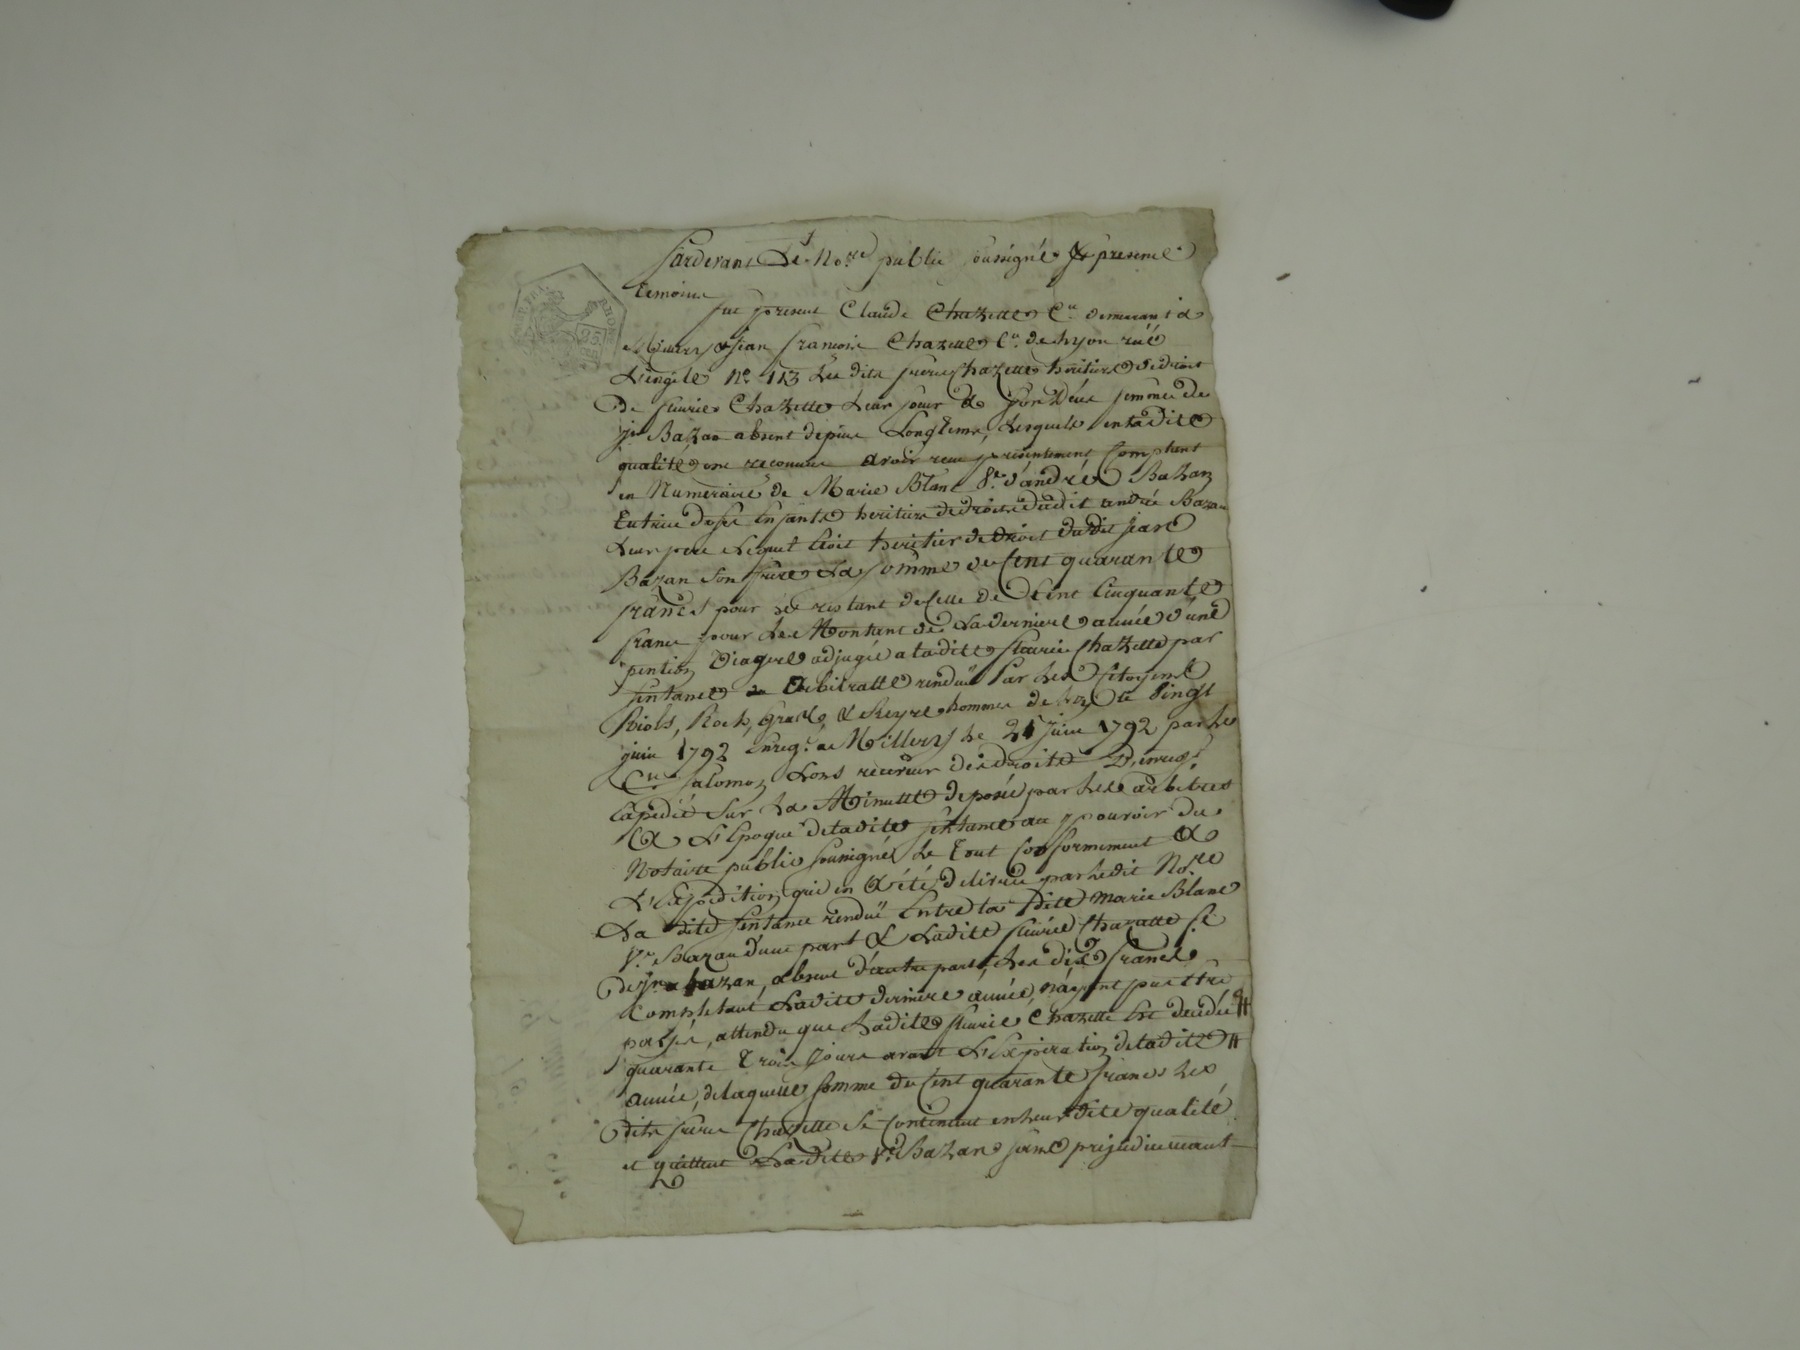 Pardevant Le No.re public soussigné & presence
temoins
fut present Claude Chazette C.n demeurant a
Millery & Jean francois Chazette C.n de Lyon rüe
N.o 113 Les dits freres Chazette heritiers de droit
De fleurie Chazette Leur soeur & femme de
j.n Bazan absent depuis Longtems, Lesquels en ladite
qualité ont reconnu avoir recu presentement Comptant
en Numeraire de Marie Blanc V.e d'andré Bazan
tutrice de ses Enfants heritiers de droits dudit andré Bazan
Leur pere Lequel Etoit heritier de Droit dudit jean
Bazan son frere La somme de Cent quarante
francs pour le restant de Celle de Cent Cinquante
francs pour Le Montant de La derniere année d'une
pention Viagere adjugée a ladite fleurie Chazette par
sentance arbitralle rendüe Par Les Citoyens
Riols, Roch, & Reyre hommes de Loy le Vingt
juin 1792 Enreg.é a Millery Le 21 juin 1792 par Le
C.n Salomon Lors receveur des droits D'enreg.t
Expedié Sur La Minutte deposée par Les arbitres
A L'Epoque de ladite sentance au pouvoir du
Notaire public soussigné Le tout Conformement A
L'Expedition qui en A été delivrée par Ledit No.re
La dite sentance rendüe Entre la dite Marie Blanc
V.e Bazan d'une part & Ladite fleurie Chazette f.e
De j.n bazan, absent d'autre part, Les dix francs
Completant Ladite derniere année, n'ayant pas Etre
payés, attendu que Ladite fleurie Chazette Est decedée
quarante trois Jours avant L'Expiration de ladite
année, de laquelle somme de Cent quarante francs Les
dits freres Chazette se Contentent en Leur dite qualité
et quittent Ladite V.e Bazan sans prejudice
REP. FRA.
RHONE
25